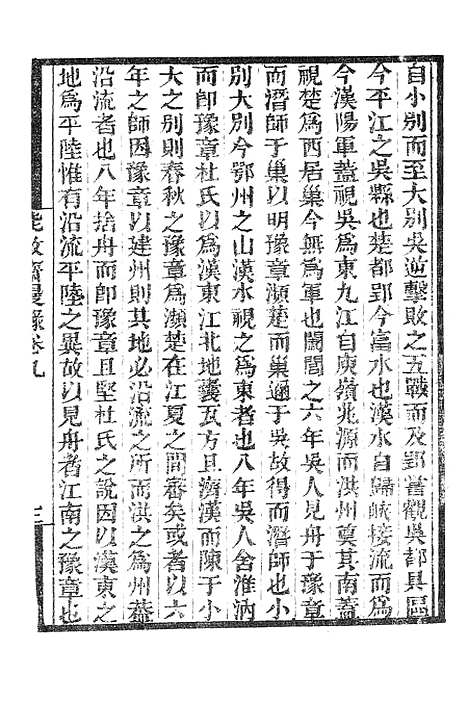 自小别而至大别吳逆擊敗之五戰而及郢嘗觀吳都具區
今平江之吳縣也楚都郢今富水也漢水自歸峽接流而爲
今漢陽軍蓋視吳爲東九江自庾嶺兆源而洪州奠其南蓋
視楚爲西居巢今無爲軍也闔閭之六年吳人見舟于豫章
而潛師于巢以明豫章瀕楚而巢逼于吳故得而潛師也小
别大别今鄂州之山漢水視之爲東者也八年吳人舍淮汭
而卽豫章杜氏以爲漢東江北地蓋瓦方且濟漢而陳于小
大之别則春秋之豫章爲瀕楚在江夏之間審矣或者以六
年之師因豫章以建州則其地必沿流之所而洪之爲州葢
沿流者也八年捨舟而卽豫章且堅杜氏之說因以漢東之
地爲平陸惟有沿流平陸之異故以見舟者江南之豫章也
能改齋漫錄卷九
三